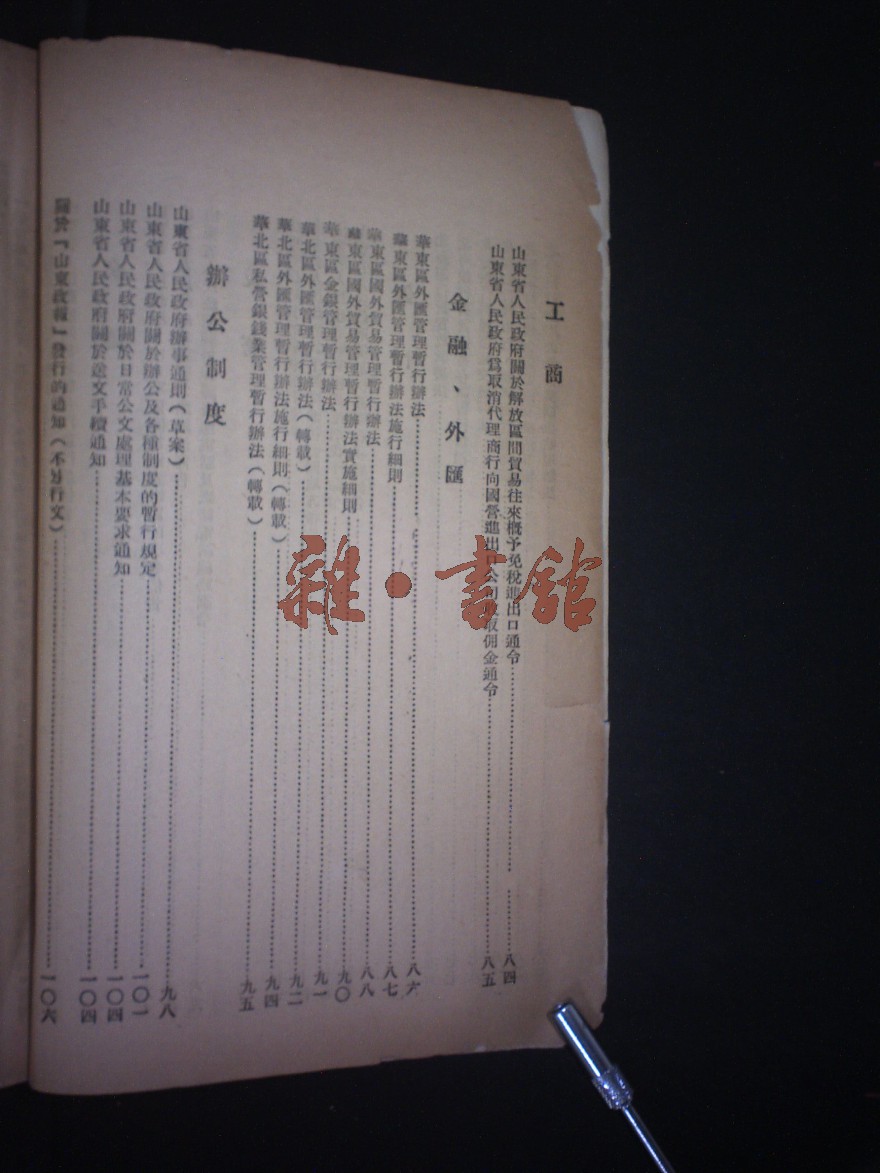 工商
山東省人民政府關於解放區間貿易往來概予免稅進出口通令……八四
山東省人民政府爲取消代理商行向國營進出口公司收取佣金通令……八五
金融、外匯
華東區外匯管理暫行辦法……八六
華東區外匯管理暫行辦法施行細則……八七
華東區國外貿易管理暫行辦法……八八
華東區國外貿易管理暫行辦法實施細則……九〇
華東區金銀管理暫行辦法……九一
華北區外匯管理暫行辦法（轉載）……九二
華北區外匯管理暫行辦法施行細則（轉載）……九四
華北區私營銀錢業管理暫行辦法（轉載）……九五
辦公制度
山東省人民政府辦事通則（草案）……九八
山東省人民政府關於辦公及各種制度的暫行規定……一〇一
山東省人民政府關於日常公文處理基本要求通知……一〇四
山東省人民政府關於送文手續通知……一〇四
關於『山東政報』發行的通知（不另行文）……一〇六
雜·書館